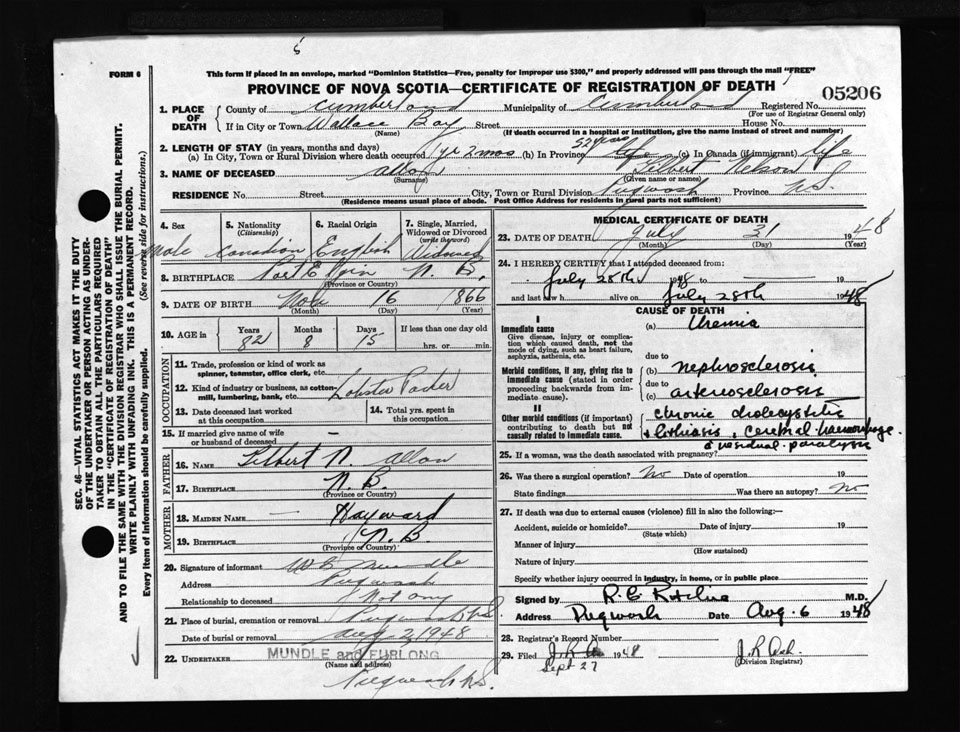 6
FORM 6
This form if placed in an envelope, marked "Dominion Statistics—Free, penalty for improper use $300," and properly addressed will pass through the mail "FREE"
PROVINCE OF NOVA SCOTIA—CERTIFICATE OF REGISTRATION OF DEATH
05206
1. PLACE OF DEATH County of Cumberland Municipality of Cumberland Registered No.
(For use of Registrar General only)
If in City or Town Wallace Bay Street House No.
(Name) (If death occurred in a hospital or institution, give the name instead of street and number)
2. LENGTH OF STAY (in years, months and days)
(a) In City, Town or Rural Division where death occurred 1 yr 2 mos (b) In Province 52 years (c) In Canada (if immigrant) life
3. NAME OF DECEASED Allan Nelson
(Surname) (Given name or names)
RESIDENCE No. Street City, Town or Rural Division Pugwash Province N.S.
(Residence means usual place of abode. Post Office Address for residents in rural parts not sufficient)
4. Sex Male
5. Nationality (Citizenship) Canadian
6. Racial Origin English
7. Single, Married, Widowed or Divorced (write the word) Widowed
8. BIRTHPLACE Port Elgin N. B.
(Province or Country)
9. DATE OF BIRTH Nov 16 1866
(Month) (Day) (Year)
10. AGE in Years 82 Months 8 Days 15 If less than one day old hrs. or min.
OCCUPATION
11. Trade, profession or kind of work as spinner, teamster, office clerk, etc.
12. Kind of industry or business, as cotton-mill, lumbering, bank, etc. Lobster Packer
13. Date deceased last worked at this occupation
14. Total yrs. spent in this occupation
15. If married give name of wife or husband of deceased —
FATHER
16. NAME N. Allan
17. BIRTHPLACE N. B.
(Province or Country)
MOTHER
18. MAIDEN NAME — Hayward
19. BIRTHPLACE N. B.
(Province or Country)
20. Signature of informant Mundle
Address Pugwash
Relationship to deceased Not any
21. Place of burial, cremation or removal Pugwash N.S.
Date of burial or removal Aug 2, 1948
22. UNDERTAKER MUNDLE and FURLONG
(Name and address)
Pugwash N.S.
MEDICAL CERTIFICATE OF DEATH
23. DATE OF DEATH July 31 1948
(Month) (Day) (Year)
24. I HEREBY CERTIFY that I attended deceased from:
July 28th 1948 to — 19
and last saw h alive on July 28th 1948
CAUSE OF DEATH
I
Immediate cause (a) Uremia
Give disease, injury or complication which caused death, not the mode of dying, such as heart failure, asphyxia, asthenia, etc.
due to
Morbid conditions, if any, giving rise to immediate cause (stated in order proceeding backwards from immediate cause).
(b) nephrosclerosis
due to
(c) arteriosclerosis
II
Other morbid conditions (if important) contributing to death but not causally related to immediate cause.
chronic cholecystitis
+ lithiasis, cerebral haemorrhage
residual paralysis
25. If a woman, was the death associated with pregnancy?
26. Was there a surgical operation? No Date of operation 19
State findings Was there an autopsy? No
27. If death was due to external causes (violence) fill in also the following:—
Accident, suicide or homicide? Date of injury 19
(State which)
Manner of injury
(How sustained)
Nature of injury
Specify whether injury occurred in industry, in home, or in public place
Signed by M.D.
Address Pugwash Date Aug. 6 1948
28. Registrar's Record Number
29. Filed Sept 27 1948
(Division Registrar)
SEC. 46—VITAL STATISTICS ACT MAKES IT THE DUTY
OF THE UNDERTAKER OR PERSON ACTING AS UNDER-
TAKER TO OBTAIN ALL THE PARTICULARS REQUIRED
IN THE "CERTIFICATE OF REGISTRATION OF DEATH"
AND TO FILE THE SAME WITH THE DIVISION REGISTRAR WHO SHALL ISSUE THE BURIAL PERMIT.
WRITE PLAINLY WITH UNFADING INK. THIS IS A PERMANENT RECORD.
Every item of information should be carefully supplied. (See reverse side for instructions.)